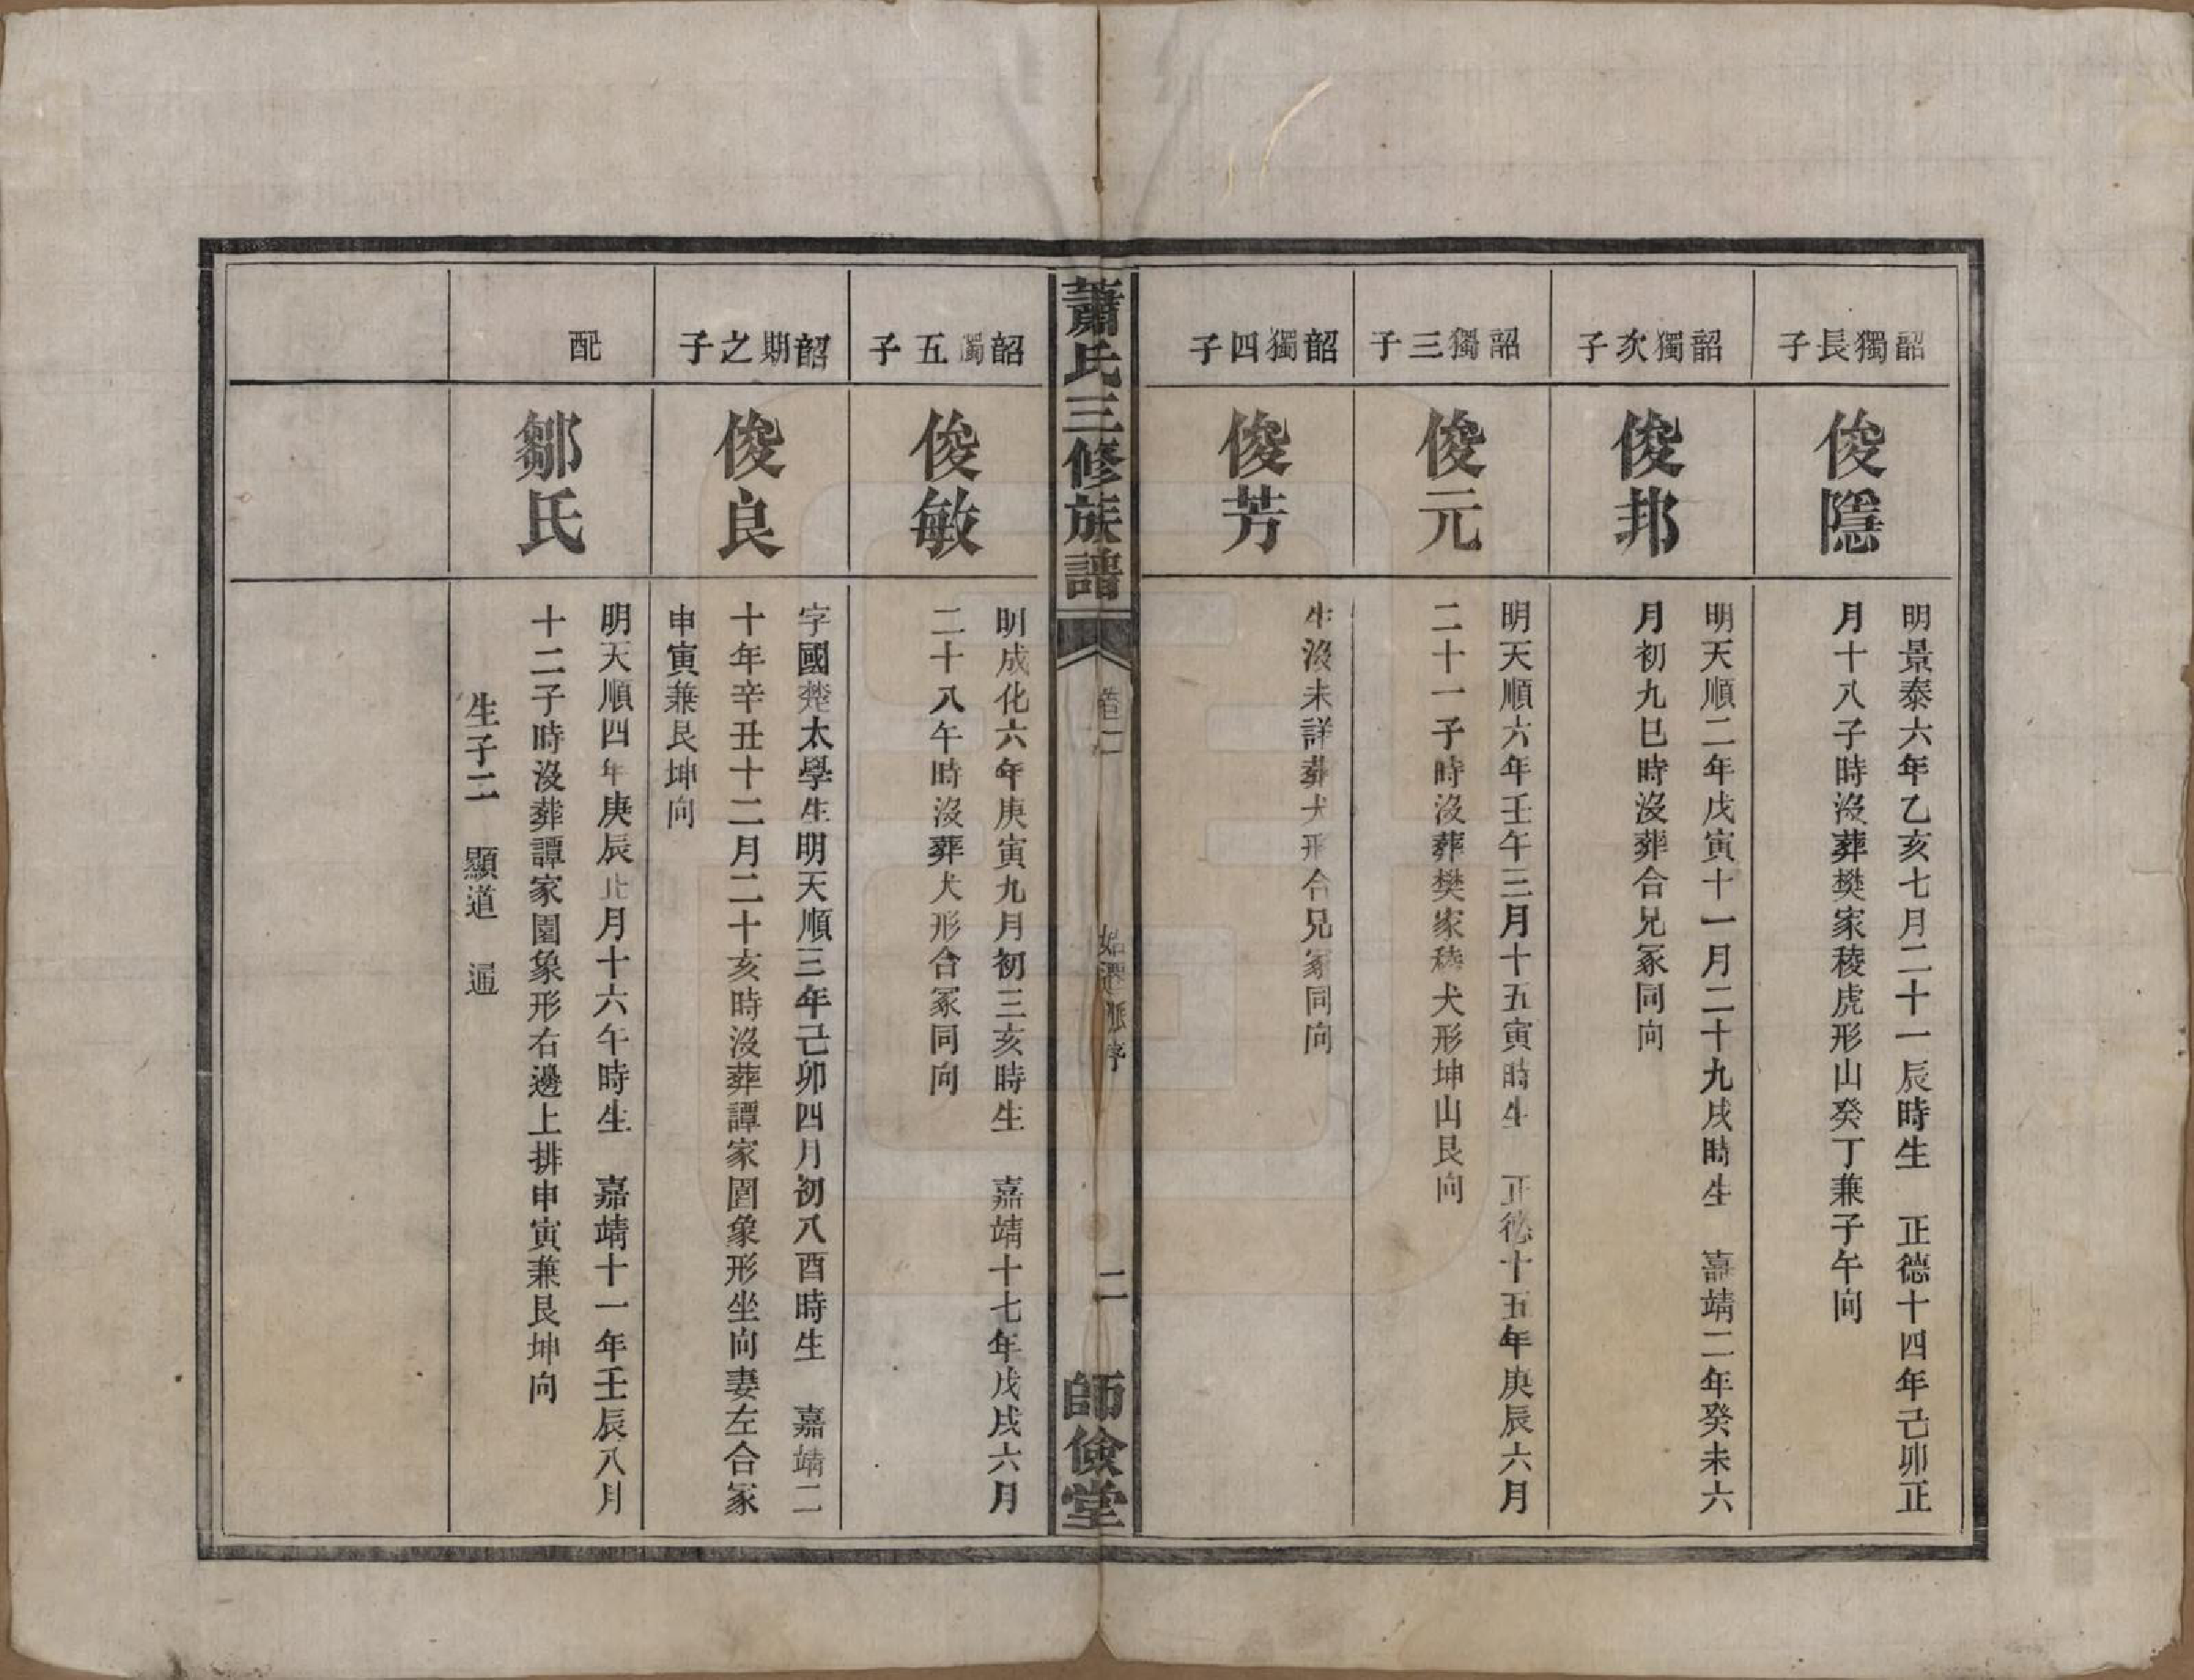 韶獨長子
俊隱
明景泰六年乙亥七月二十一辰時生　正德十四年己卯正
月十八子時沒葬樊家稜虎形山癸丁兼子午向
韶獨次子
俊邦
明天順二年戊寅十一月二十九戌時生　嘉靖二年癸未六
月初九巳時沒葬合兄冢同向
韶獨三子
俊元
明天順六年壬午三月十五寅時生　正德十五年庚辰六月
二十一子時沒葬樊家稜犬形坤山艮向
韶獨四子
俊芳
生沒未詳葬犬形合兄冢同向
蕭氏三修族譜
卷二
始遷派序
二
師儉堂
韶獨五子
俊敏
明成化六年庚寅九月初三亥時生　嘉靖十七年戊戌六月
二十八午時沒葬犬形合冢同向
韶期之子
俊良
字國楚太學生明天順三年己卯四月初八酉時生　嘉靖二
十年辛丑十二月二十亥時沒葬譚家園象形坐向妻左合冢
申寅兼艮坤向
配
鄒氏
明天順四年庚辰正月十六午時生　嘉靖十一年壬辰八月
十二子時沒葬譚家園象形右邊上排申寅兼艮坤向
生子二　顯道　逼